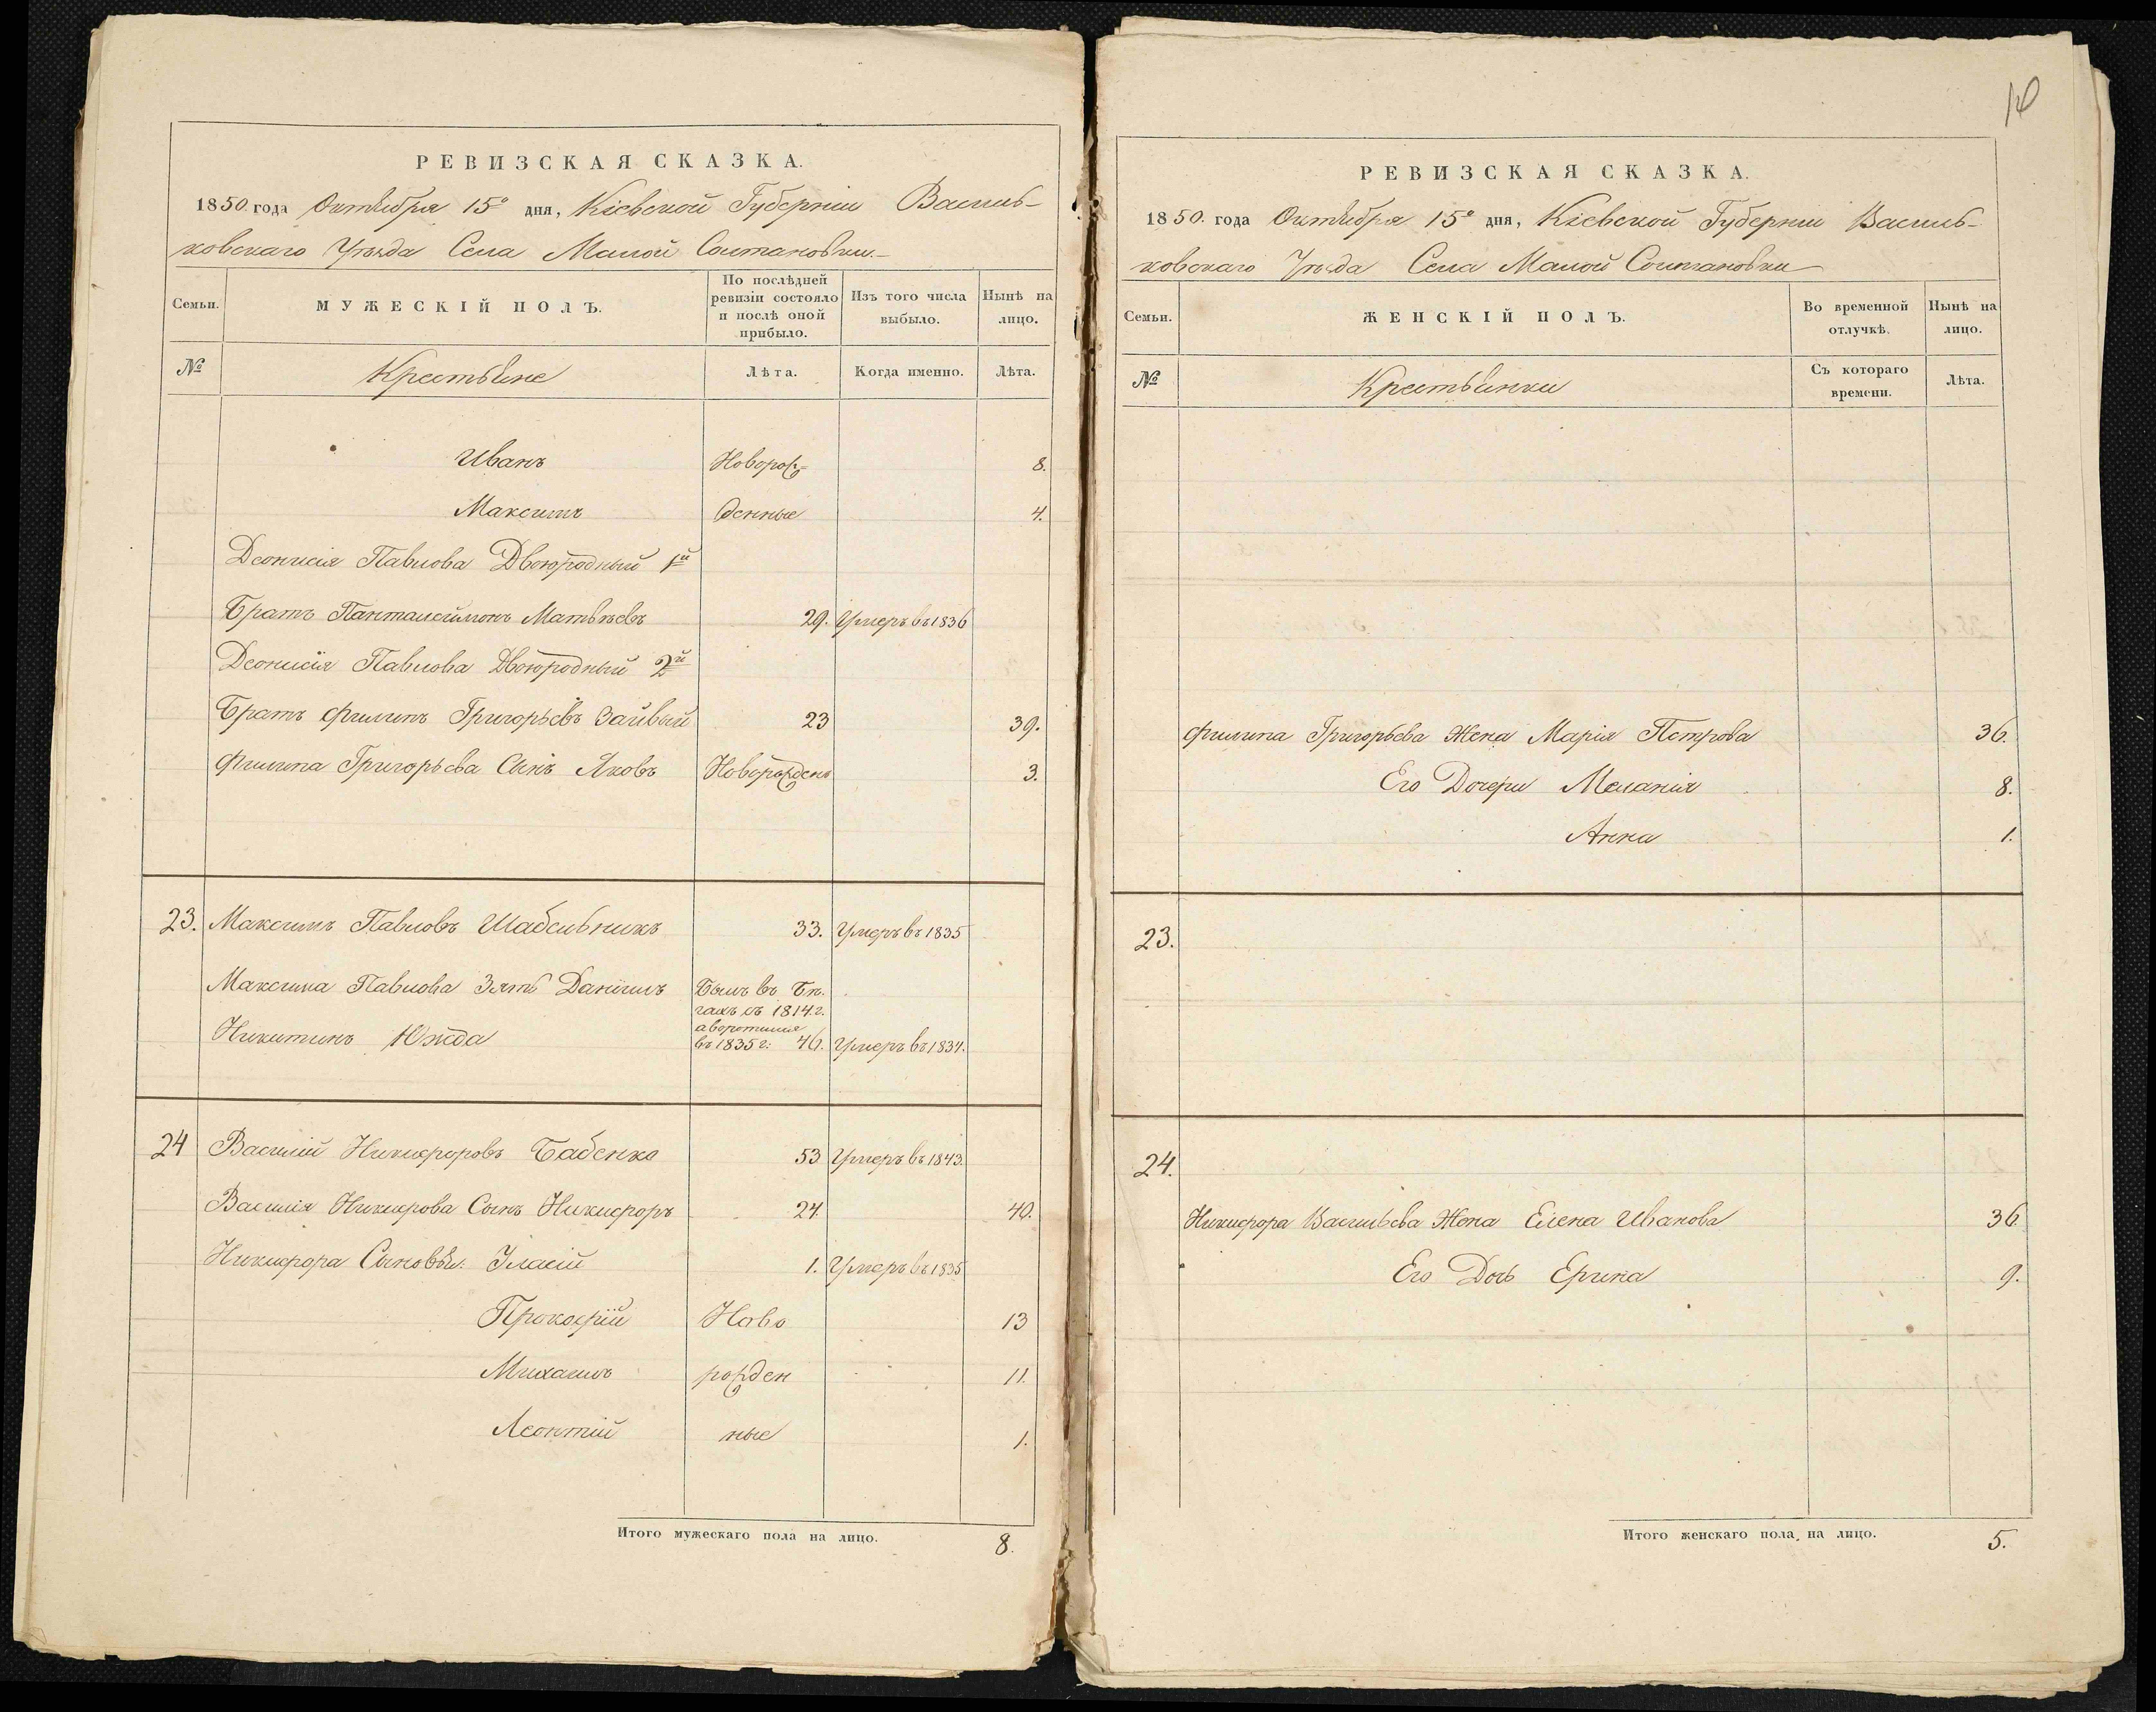 10
РЕВИЗСКАЯ СКАЗКА.
1850 года Октября 15го дня, Кіевской Губерніи Василь-
ковскаго Уѣзда Села Малой Солтановки.
Семьи.
МУЖЕСКІЙ ПОЛЪ.
По послѣдней ревизіи состояло и послѣ оной прибыло.
Изъ того числа выбыло.
Нынѣ на лицо.
№
Крестьяне
Лѣта.
Когда именно.
Лѣта.
Иванъ Новорож- 8.
Максимъ денные 4.
Деонисія Павлова Двоюродный 1й
Братъ Пантелеймонъ Матвѣевъ 29. Умеръ въ 1836
Деонисія Павлова Двоюродный 2й
Братъ Филипъ Григорьевъ 23 39.
Филипа Григорьева Сынъ Яковъ Новорожденъ 3.
23. Максимъ Павловъ Шабельникъ 33. Умеръ въ 1835
Максима Павлова Зять Даніилъ Былъ въ Бѣ-
гахъ съ 1814 г.
Никитинъ Южда
въ 1835 г: 46. Умеръ въ 1837.
24 Василий Никифоровъ Бабенко 53 Умеръ въ 1843.
Василія Никифрова Сынъ Никифоръ 24 40.
Никифора Сыновья: Уласій 1. Умеръ въ 1835
Прокофій Ново 13
Михаилъ рожден 11.
Леонтій ные 1.
Итого мужескаго пола на лицо. 8.
РЕВИЗСКАЯ СКАЗКА.
1850 года Октября 15го дня, Кіевской Губерніи Василь-
ковскаго Уѣзда Села Малой Солтановки
Семьи.
ЖЕНСКІЙ ПОЛЪ.
Во временной отлучкѣ.
Нынѣ на лицо.
№
Крестьянки
Съ котораго времени.
Лѣта.
Филипа Григорьева Жена Марія Петрова 36.
Его Дочери Меланія 8.
Анна 1.
23.
24.
Никифора Васильева Жена Елена Иванова 36
Его Дочь Ерина 9.
Итого женскаго пола на лицо. 5.